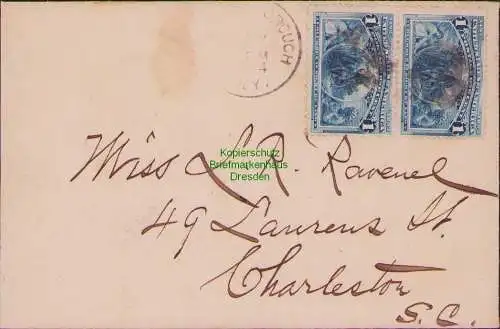 OUCH
1 1
Kopierschutz
Briefmarkenhaus
Dresden
Miss L. R. Ravenel
49 Laurens St.
Charleston
S.C.